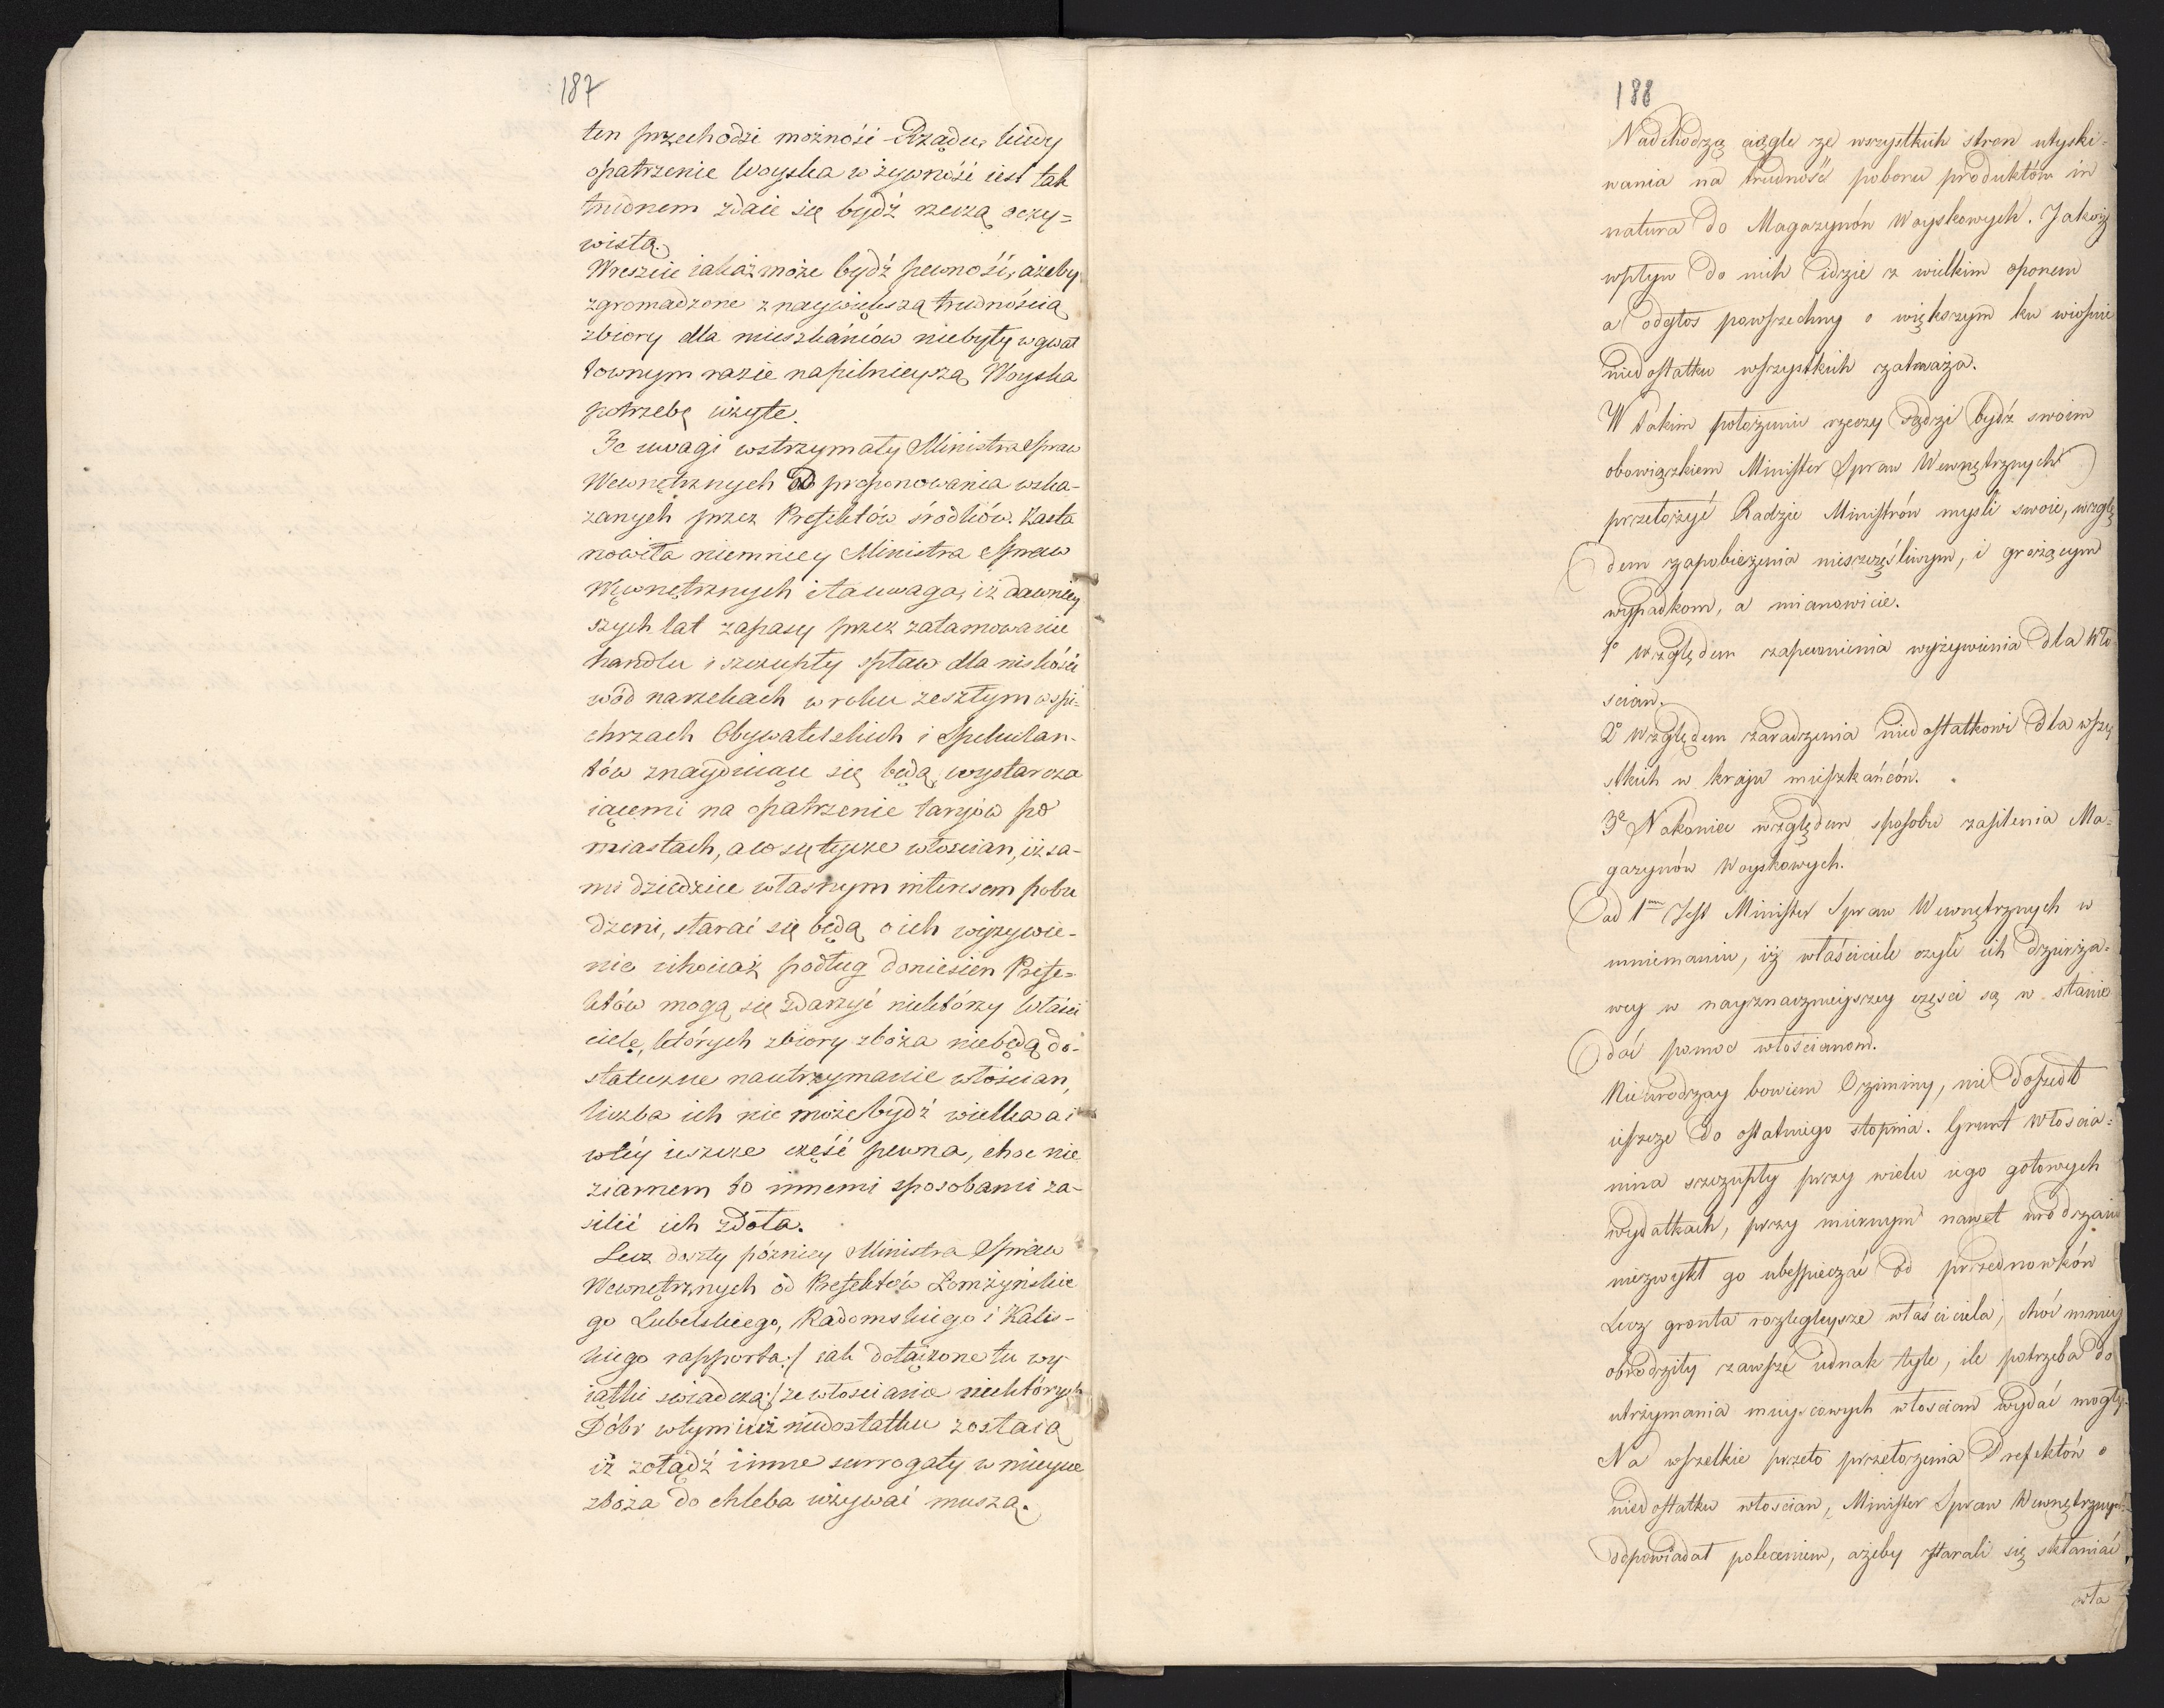 187
ten przechodzi możność Rządu, kiedy
opatrzenie Woyska w żywność iest tak
trudnem zdaie się bydź rzeczą oczy=
wistą.
Wreszcie iakaż może bydź pewność, ażeby
zgromadzone z naywiększą trudnością
zbiory dla mieszkańców niebyły w gwał
townym razie napilnieyszą Woyska
potrzebę użyte.
Te uwagi wstrzymały Ministra Spraw
Wewnętrznych od proponowania wska-
zanych przez Prefektów śródków. Zasta
nowiła niemniey Ministra Spraw
Wewnętrznych i ta uwaga, iż dawniey
szych lat zapasy przez zatamowanie
handlu i szczupły spław dla niskości
wód na rzekach w roku zeszłym w spi-
chrzach Obywatelskich i Spekulan-
tów znayduiące się będą wystarcza
iącemi na opatrzenie targów po
miastach, a co się tycze włościan, iż sa-
mi dziedzice własnym interesem pobu
dzeni, starać się będą o ich wyżywie-
nie chociaż podług doniesien Prefe-
któw mogą się zdarzyć niektórzy właści
ciele, których zbiory zboża niebędą do-
stateczne na utrzymanie włościan,
liczba ich nie może bydź wielka a i
w téy ieszcze część pewna, choc nie
ziarnem to innemi sposobami za-
silić ich zdoła.
Lecz doszły późniey Ministra Spraw
Wewnętrznych od Prefektów Łomżyńskie
go Lubelskiego, Radomskiego i Kalis-
kiego rapporta :/ iak dołączone tu wy
iątki swiadczą :/ ze włościanie niektórych
Dóbr w tym iuż niedostatku zostaią
iż żołądź i inne surrogaty w mieysce
zboża do chleba używać muszą.
188
Nadchodzą ciągle ze wszystkich stron utyski=
wania na trudność poboru produktów in
natura do Magazynów Woyskowych. Jakoż
wpływ do nich idzie z wielkim oporem
a odgłos powszechny o większym ku wiosnie
niedostatku wszystkich zatrważa.
W takim położeniu rzeczy sądzi bydź swoim
obowiązkiem Minister Spraw Wewnętrznych
przełożyć Radzie Ministrów mysli swoie, wzglę
dem zapobieżenia nieszczęśliwym, i grożącym
wypadkom, a mianowicie.
1o względem zapewnienia wyżywienia dla Wło
scian.
2o względem zaradzenia niedostatkowi dla wszy
stkich w kraju mieszkańców.
3o Nakoniec względem sposobu zasilenia Ma=
gazynów Woyskowych.
ad 1um Jest Minister Spraw Wewnętrznych w
mniemaniu, iż właściciele czyli ich dzierża=
wcy w nayznacznieyszey częsci są w stanie
dać pomoc włościanom.
Nieurodzay bowiem Oziminy, nie doszedł
ieszcze do ostatniego stopnia. Grunt Włoscia=
nina szczupły przy wielu iego gotowych
wydatkach, przy miernym nawet urodzaiu
niezwykł go ubespieczać od przednowków
Lecz gronta rozlegleysze właściciela, choć mniey
obrodziły zawsze iednak tyle, ile potrzeba do
utrzymania mieyscowych włoscian wydać mogły.
Na wszelkie przeto przełożenia Prefektów o
niedostatku włoscian, Minister Spraw Wewnętrznych
odpowiadał poleceniem, ażeby starali się skłaniać
wła